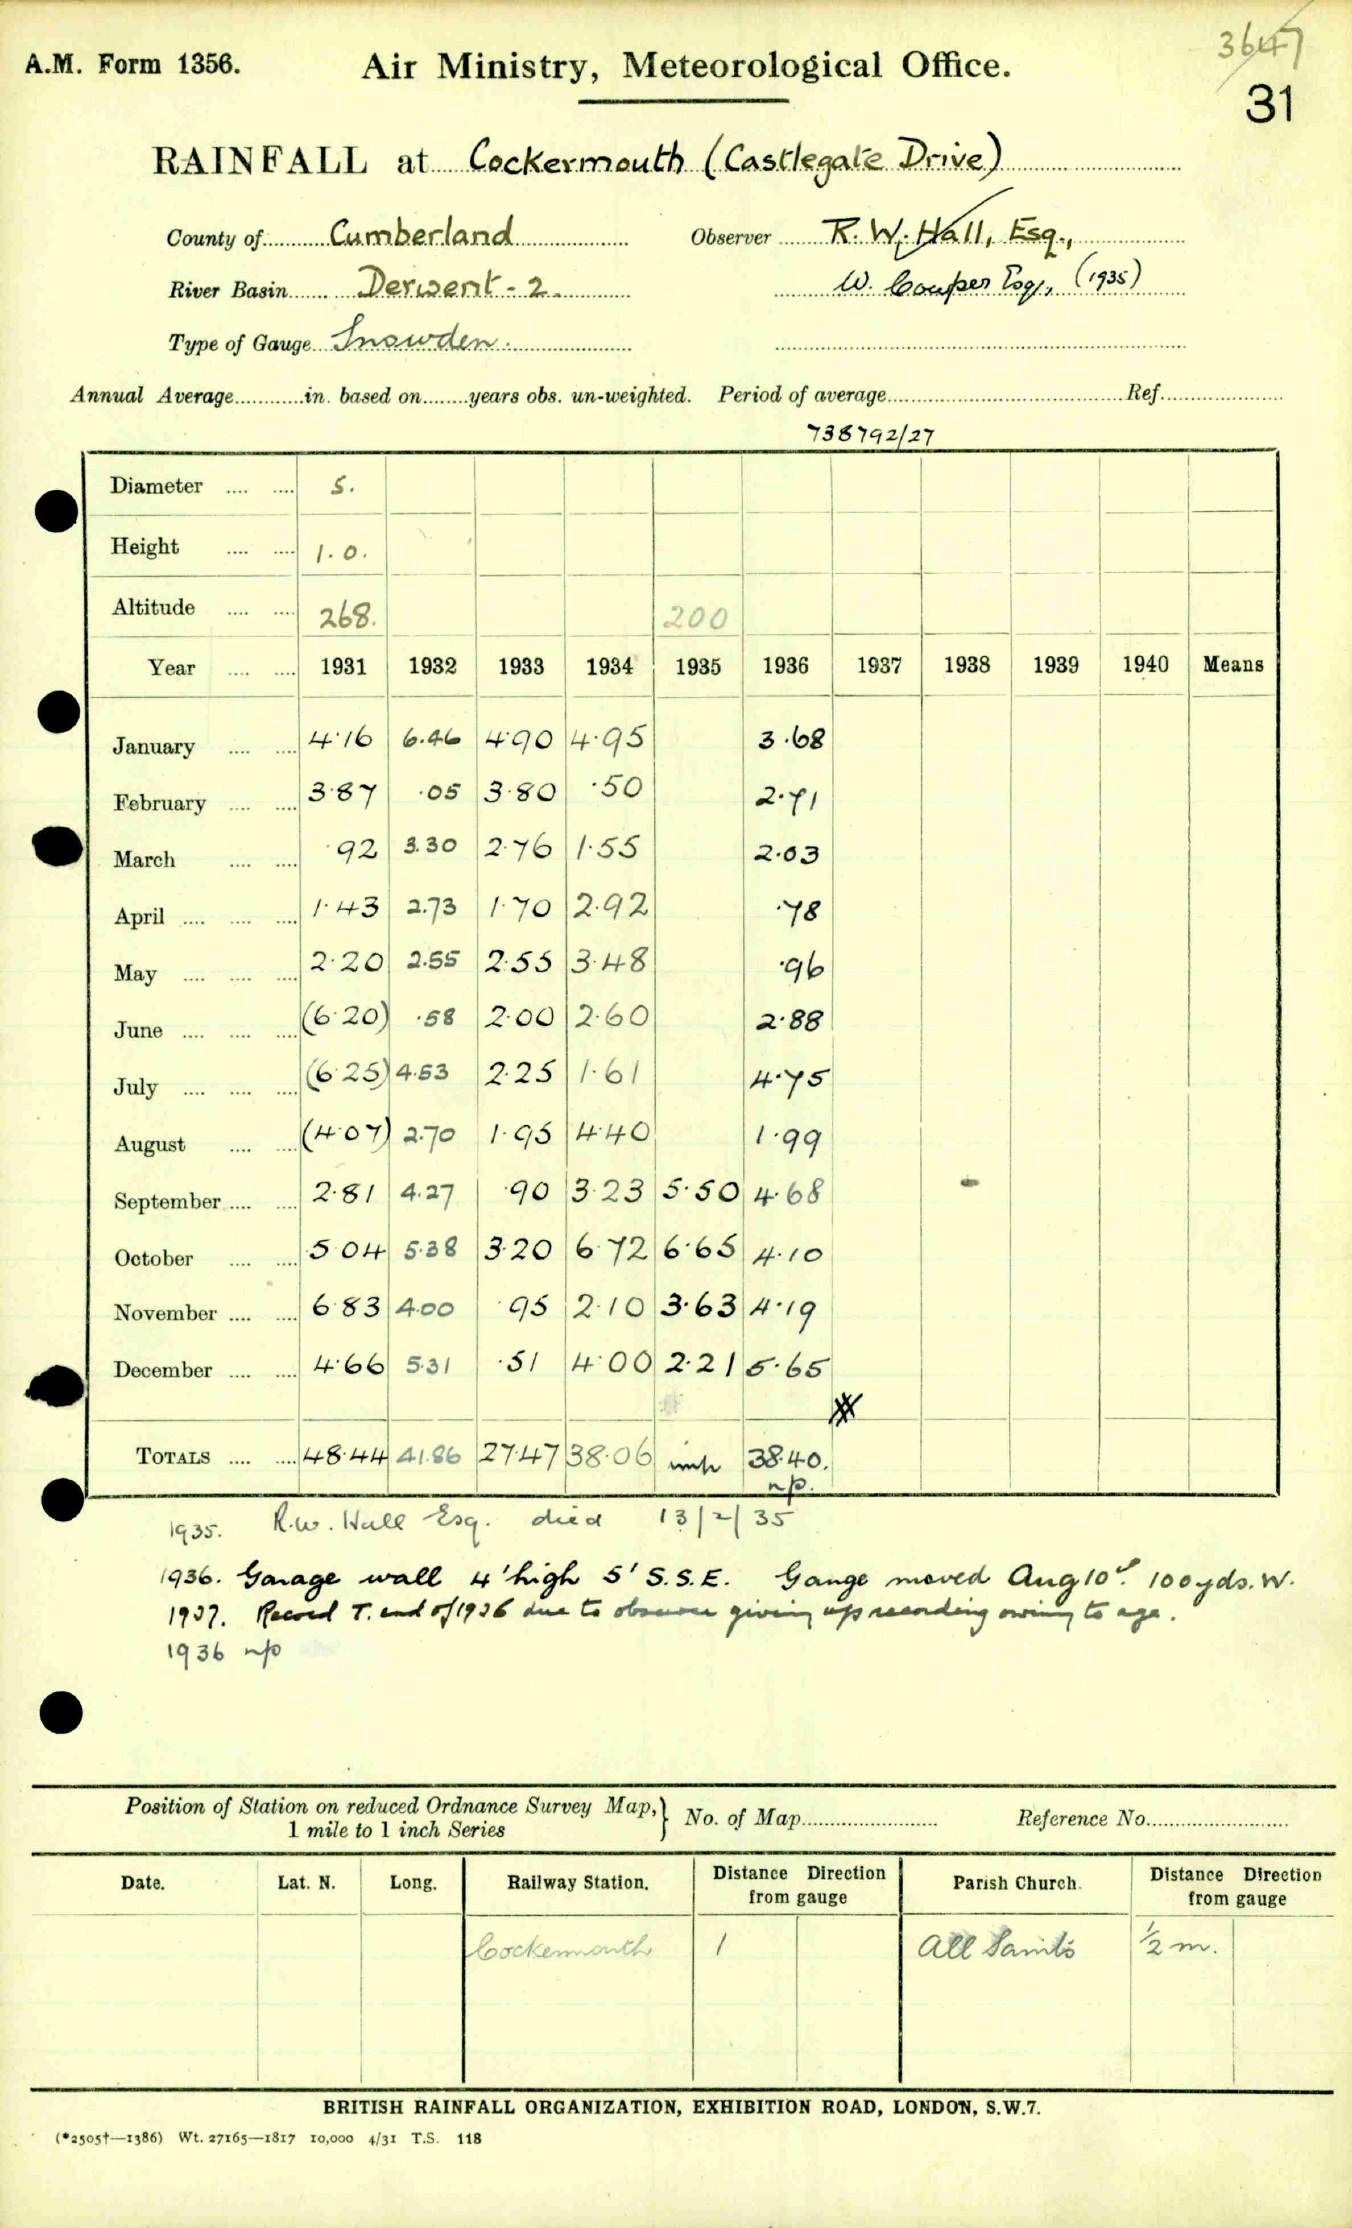 3647
A.M. Form 1356. Air Ministry, Meteorological Office.
31
RAINFALL at Cockermouth (Castlegate Drive)
County of Cumberland Observer R. W. Hall, Esq.,
River Basin Derwent - 2. W. Couper Esq., (1935)
Type of Gauge Snowden.
Annual Average in. based on years obs. un-weighted. Period of average Ref.
738792/27
Diameter 5.
Height 1.0.
Altitude 268. 200
Year 1931 1932 1933 1934 1935 1936 1937 1938 1939 1940 Means
January 4.16 6.46 4.90 4.95 3.68
February 3.87 .05 3.80 .50 2.71
March .92 3.30 2.76 1.55 2.03
April 1.43 2.73 1.70 2.92 .78
May 2.20 2.55 2.55 3.48 .96
June (6.20) .58 2.00 2.60 2.88
July (6.25) 4.53 2.25 1.61 4.75
August (4.07) 2.70 1.95 4.40 1.99
September 2.81 4.27 .90 3.23 5.50 4.68
October 5.04 5.38 3.20 6.72 6.65 4.10
November 6.83 4.00 .95 2.10 3.63 4.19
December 4.66 5.31 .51 4.00 2.21 5.65
TOTALS 48.44 41.86 27.47 38.06 imp 38.40.
np.
1935. R.W. Hall Esq. died 13/2/35
1936. Garage wall 4' high 5' S.S.E. Gauge moved Aug 10th. 100 yds. W.
1937. Record T. end of 1936 due to observer giving up recording owing to age.
1936 np
Position of Station on reduced Ordnance Survey Map, } No. of Map Reference No.
1 mile to 1 inch Series
Date. Lat. N. Long. Railway Station. Distance Direction from gauge Parish Church. Distance Direction from gauge
Cockermouth 1 All Saints ½ m.
BRITISH RAINFALL ORGANIZATION, EXHIBITION ROAD, LONDON, S.W.7.
(*2505†—1386) Wt. 27165—1817 10,000 4/31 T.S. 118